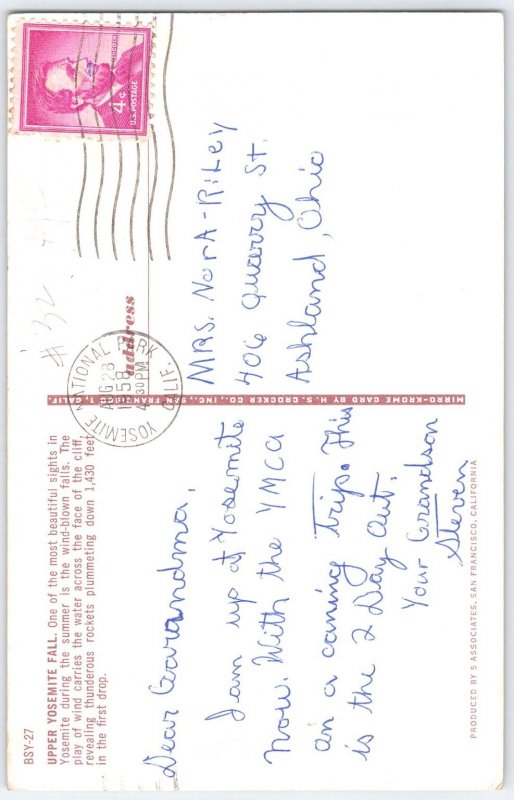 BSY-27
UPPER YOSEMITE FALL. One of the most beautiful sights in
Yosemite during the summer is the wind-blown falls. The
play of wind carries the water across the face of the cliff,
revealing thunderous rockets plummeting down 1,430 feet
in the first drop.
Dear Grandma,
I am up at Yosemite
now. With the YMCA
on a caning trip. This
is the 2 Day out.
Your Grandson
Steven
PRODUCED BY 5 ASSOCIATES, SAN FRANCISCO, CALIFORNIA
MIRRO-KROME CARD BY H. S. CROCKER CO., INC., SAN FRANCISCO 1, CALIF.
YOSEMITE NATIONAL PARK
CALIF.
AUG 23
1958
4 30 PM
address
4¢
U.S. POSTAGE
# 32
MRS. NorA-RiLey
406 Quarry St.
Ashland, Ohio